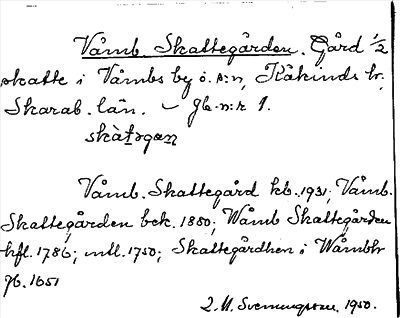 Våmb Skattegården. Gård 1/2
skatte i Våmbs by o. s:n, Kåkinds hr,
Skarab. län. – Jb.n:r 1.
skàtəgaṇ
Våmb. Skattegård kb. 1931; Våmb.
Skattegården bek. 1880; Wåmb Skattegården
hfl. 1786; mtl. 1750; Skattegårdhen i Wåmbb
Jb. 1651
Svenungsson. 1950.